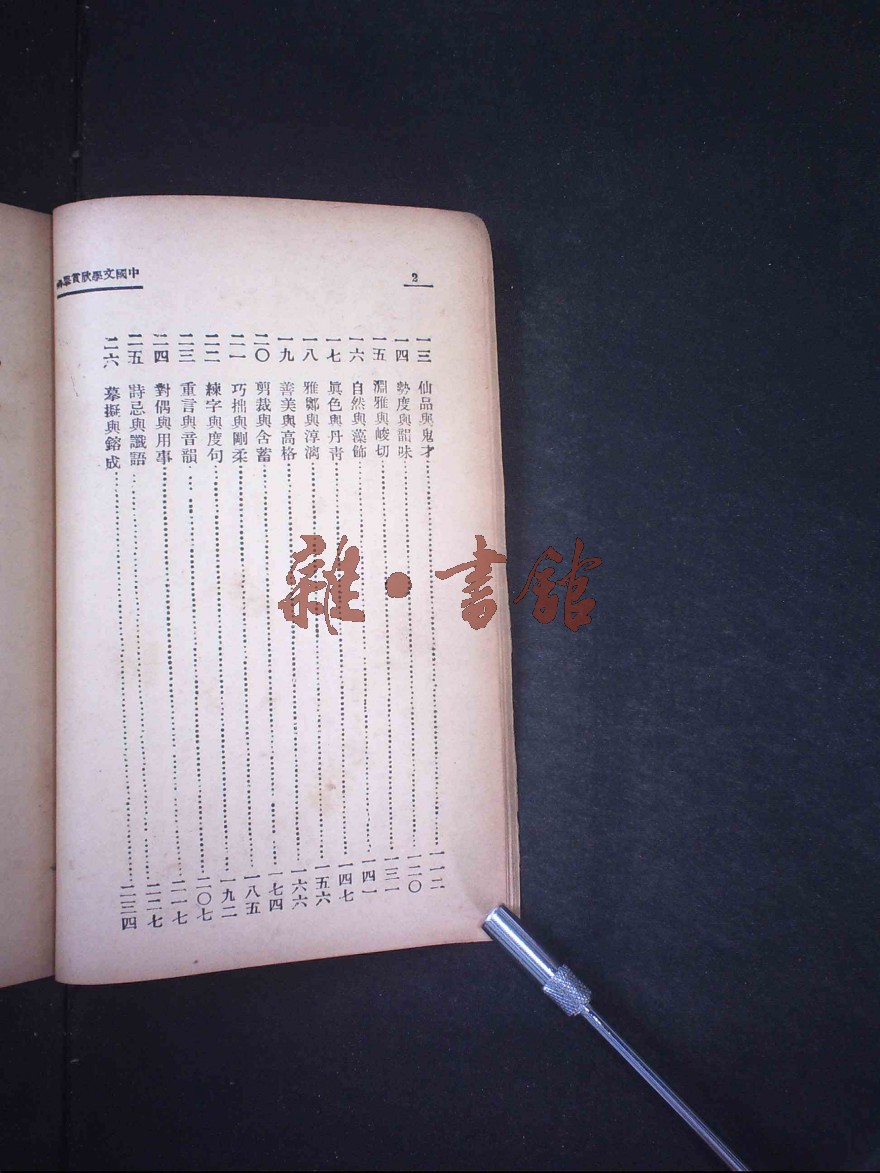 2
中國文學欣賞舉
一三 仙品與鬼才 一一二
一四 勢度與韻味 一二〇
一五 淵雅與峻切 一三一
一六 自然與藻飾 一四一
一七 眞色與丹青 一四七
一八 雅鄭與淳漓 一五六
一九 善美與高格 一六六
二〇 剪裁與含蓄 一七四
二一 巧拙與剛柔 一八五
二二 練字與度句 一九二
二三 重言與音韻 二〇七
二四 對偶與用事 二一七
二五 詩忌與讖語 二二七
二六 摹擬與鎔成 二三四
雜·書館